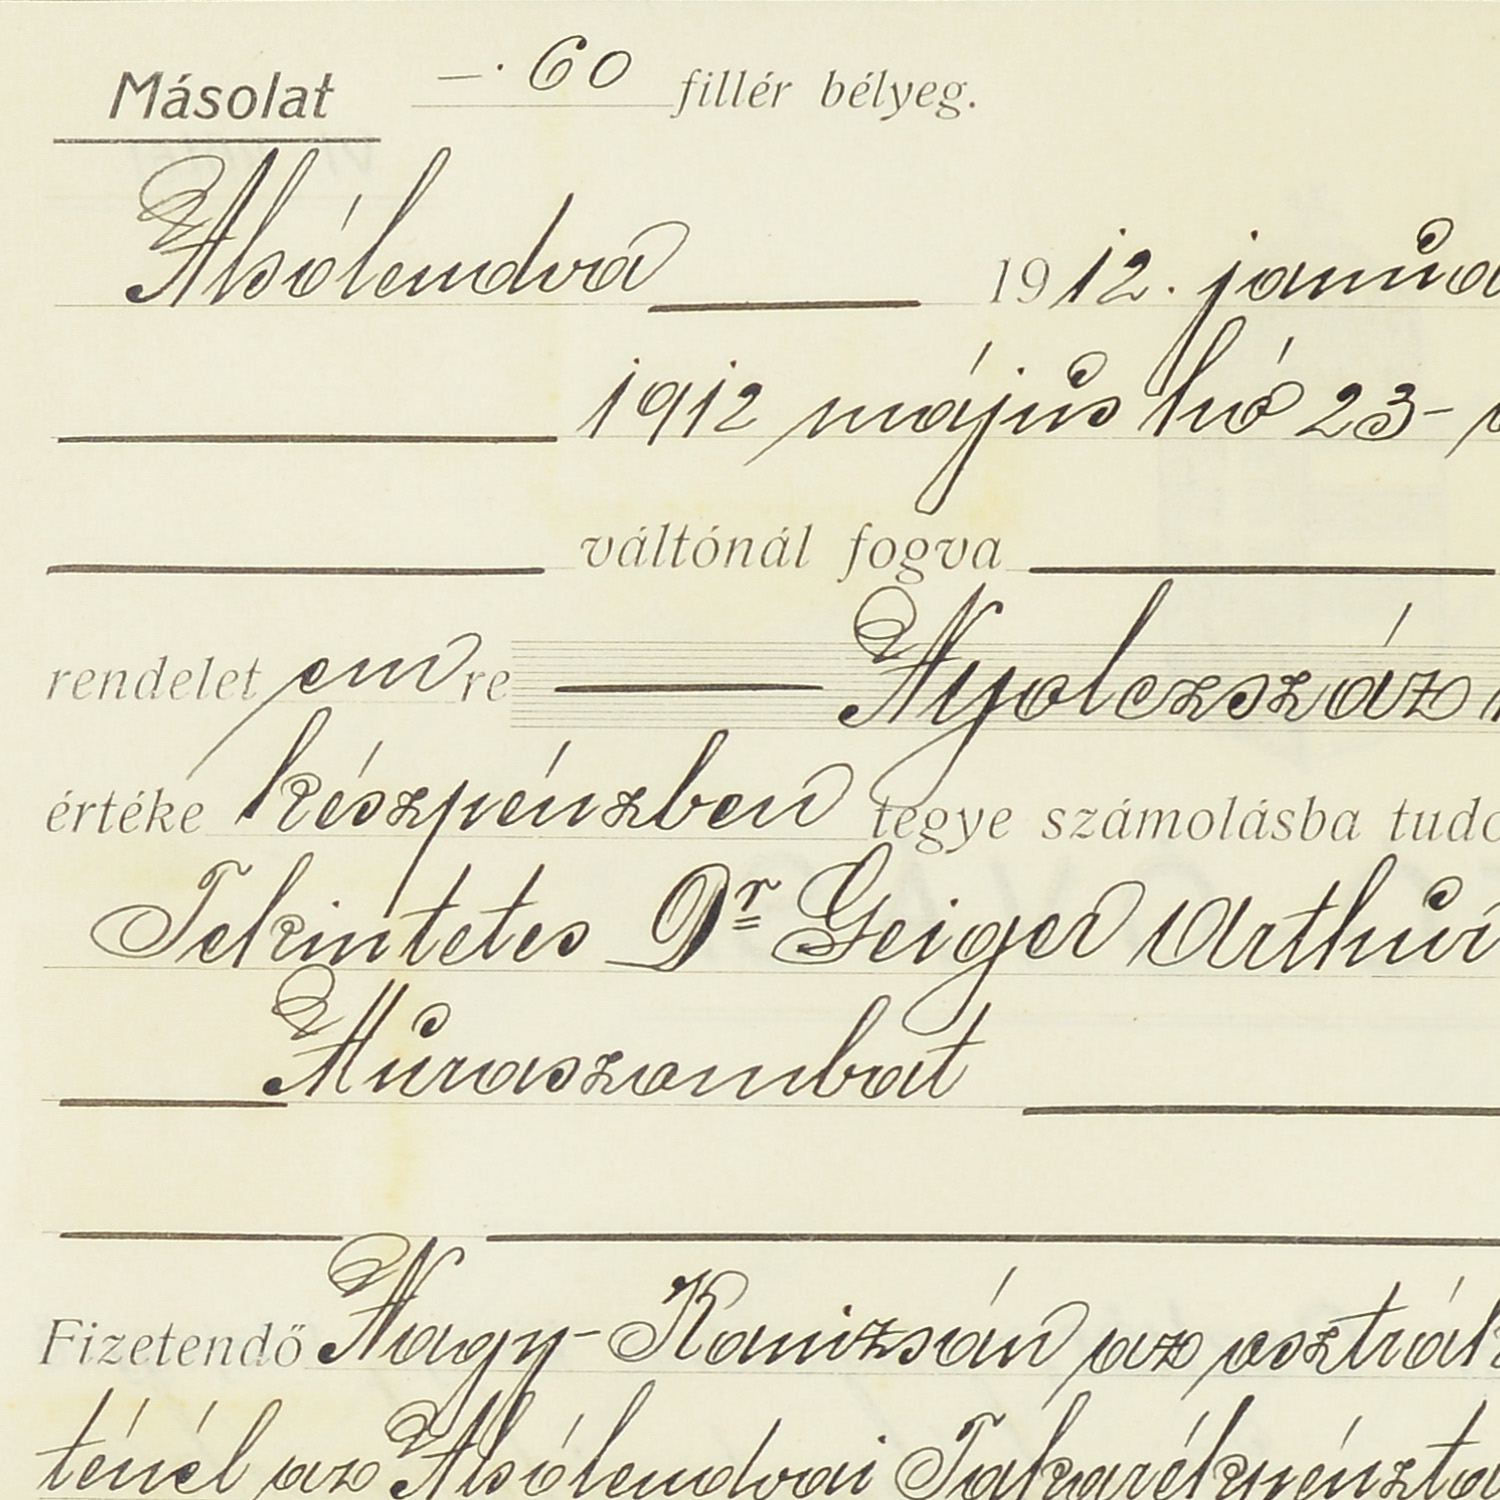 Másolat —·60 fillér bélyeg.
Alsólendva 1912. janua
1912 május hó 23-
váltónál fogva
rendelet em re Nyolczszáz
értéke készpénzben tegye számolásba tudo
Tekintetes Dr Geiger Arthur
Muraszombat
Fizetendő Nagy-Kanizsán az osztrák
ténél az Alsólendvai Takarékpénzta